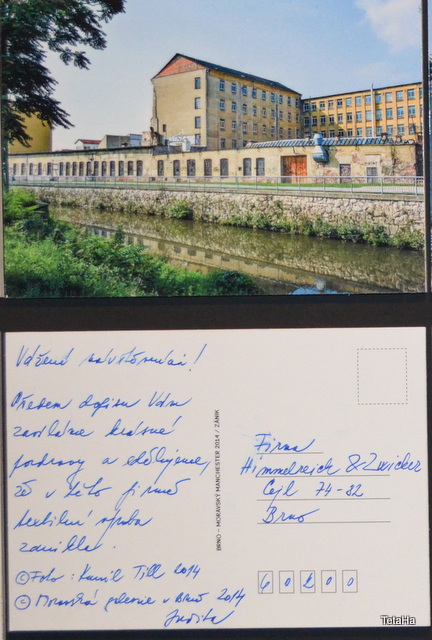 Vážení návštěvníci!
Předem dopisu Vám
zasíláme krásné
pozdravy a sdělujeme,
že v této firmě
textilní výroba
zanikla.
©Foto: Kamil Till 2014
© Moravská galerie v Brně 2014
Judita
BRNO – MORAVSKÝ MANCHESTER 2014 / ZÁNIK
Firma
Himmelreich & Zwicker
Cejl 74-82
Brno
60200
TetaHa